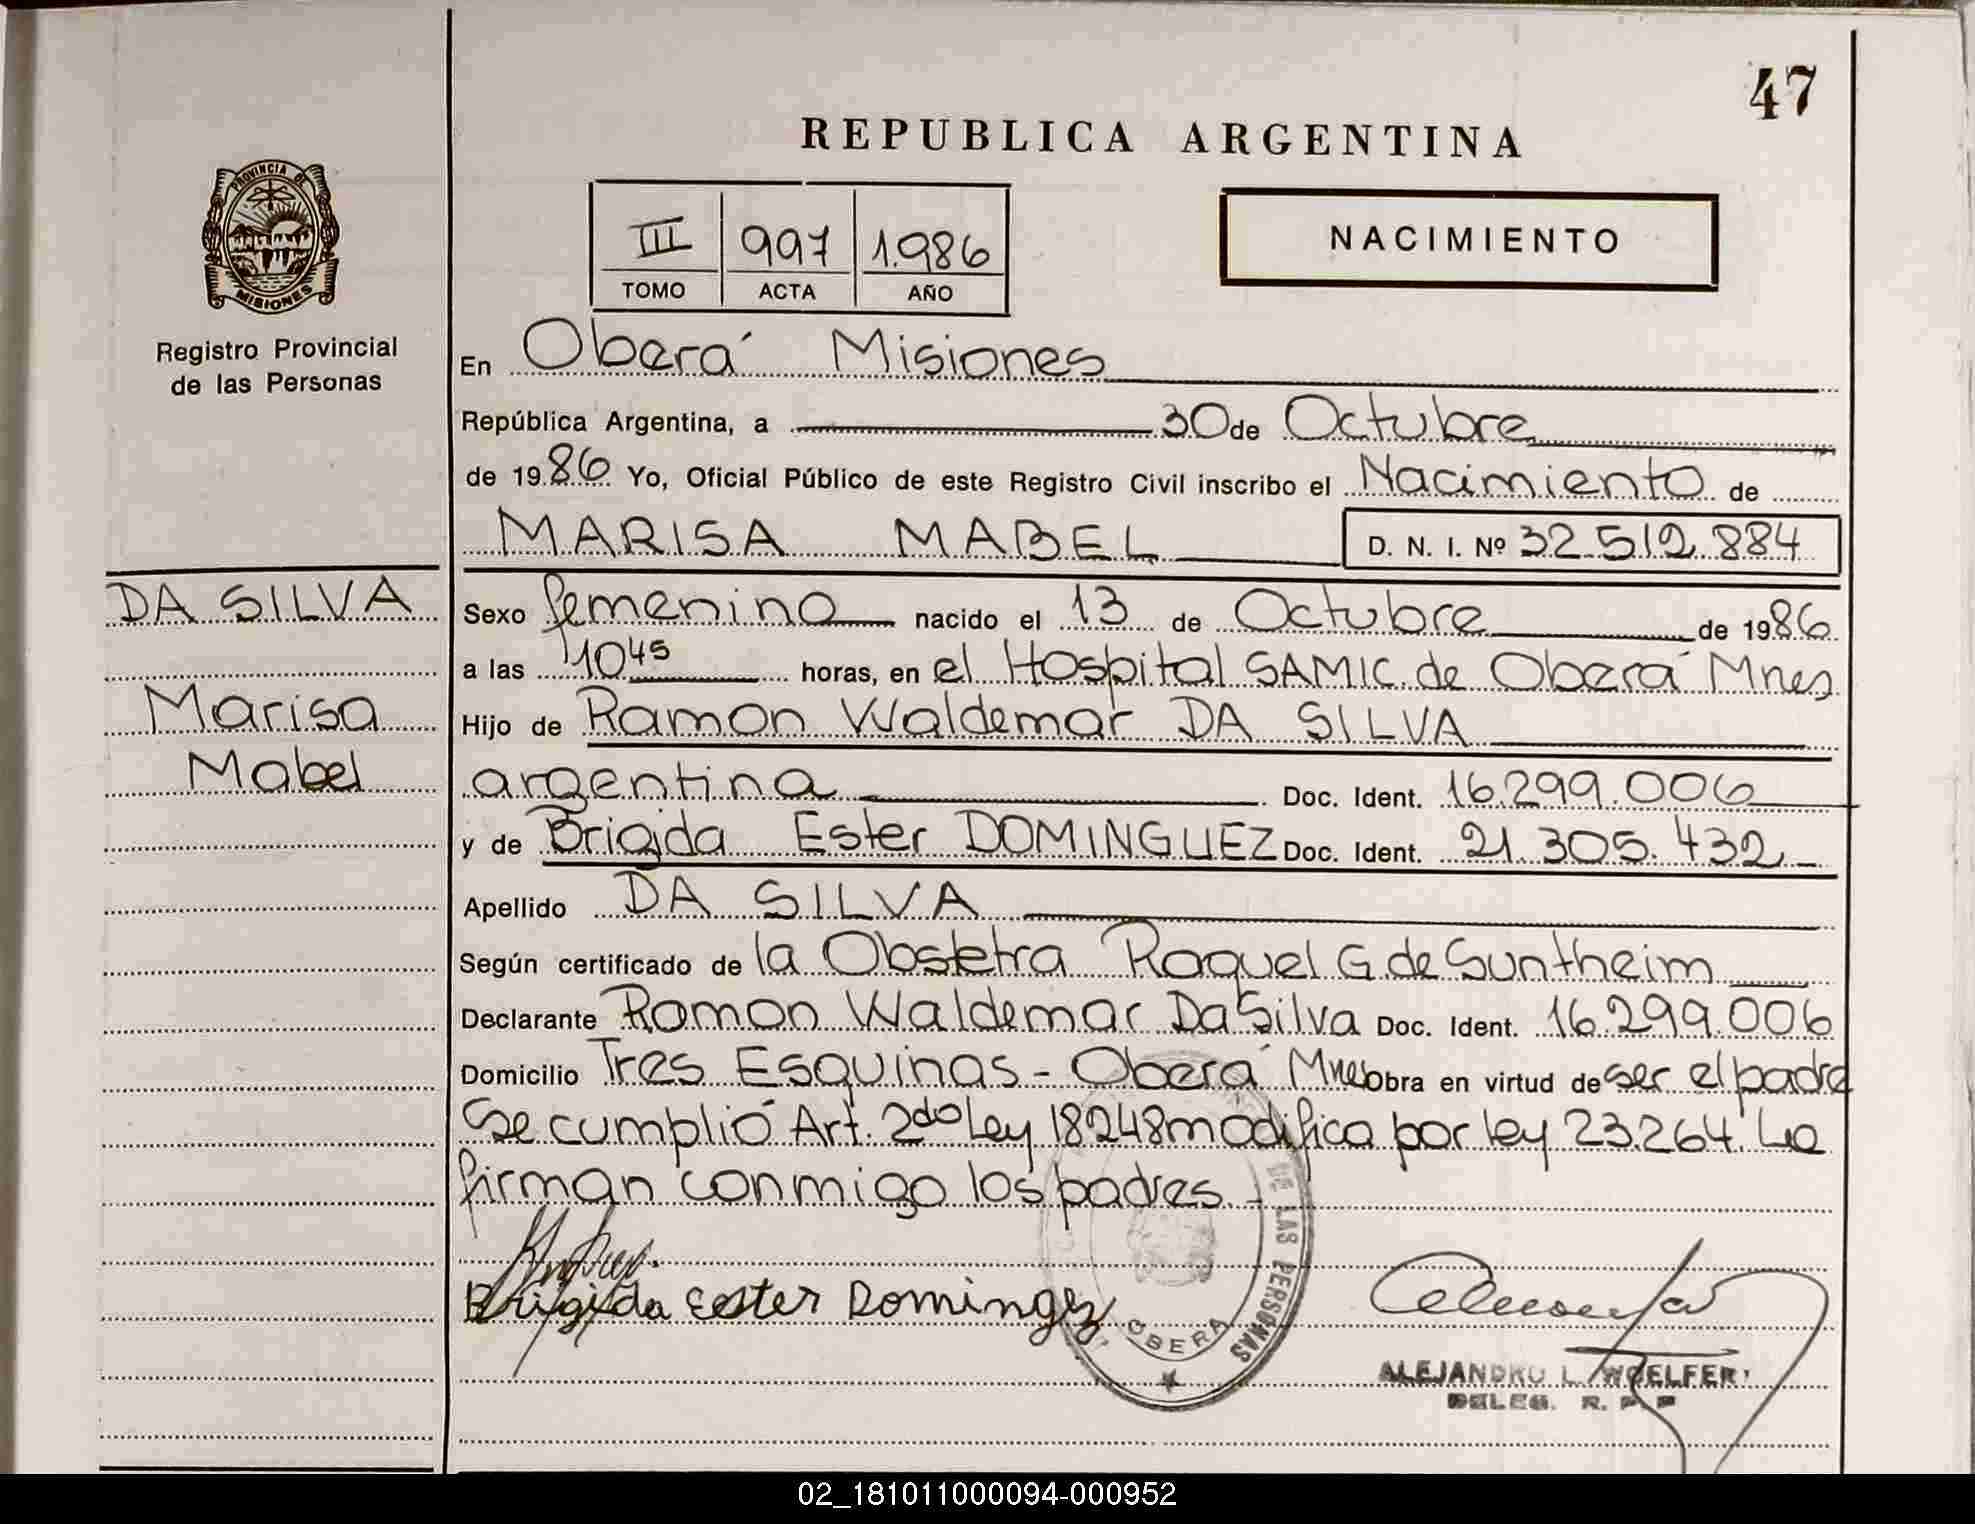 47
REPUBLICA ARGENTINA
PROVINCIA DE
MISIONES
Registro Provincial
de las Personas
III 997 1.986
TOMO ACTA AÑO
NACIMIENTO
En Oberá Misiones
República Argentina, a 30 de Octubre
de 1986 Yo, Oficial Público de este Registro Civil inscribo el Nacimiento de
MARISA MABEL D. N. I. Nº 32.512.884
DA SILVA
Marisa
Mabel
Sexo femenino nacido el 13 de Octubre de 1986
a las 10 45 horas, en el Hospital SAMIC. de Oberá Mnes
Hijo de Ramon Waldemar DA SILVA
argentina Doc. Ident. 16.299.006
y de Brigida Ester DOMINGUEZ Doc. Ident. 21.305.432
Apellido DA SILVA
Según certificado de la Obstetra Raquel G. de Suntheim
Declarante Ramon Waldemar Da Silva Doc. Ident. 16.299.006
Domicilio Tres Esquinas - Oberá Mnes Obra en virtud de ser el padre
Se cumplió Art. 2do Ley 18248 modifica por ley 23.264. La
firman conmigo los padres.-
Brigida Ester Domingez
DE LAS PERSONAS
OBERA
ALEJANDRO L. WOELFERT
DELEG. R. P. P
02_181011000094-000952